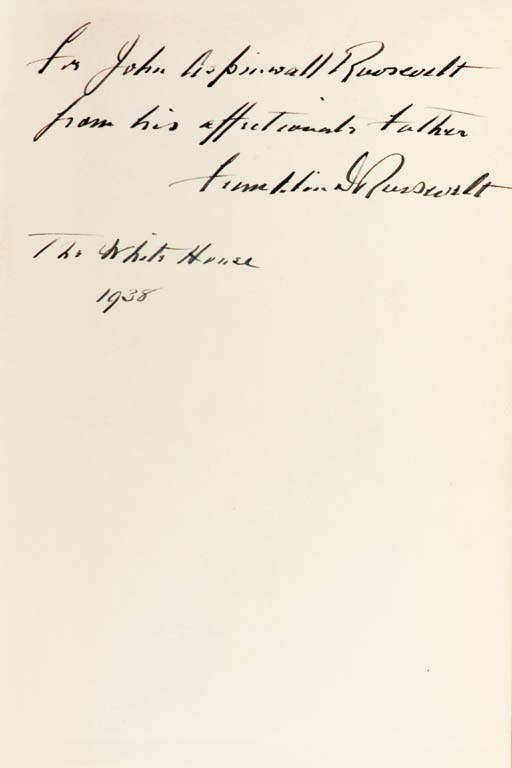 For John Aspinwall Roosevelt
from his affectionate father
Franklin D Roosevelt
The White House
1938